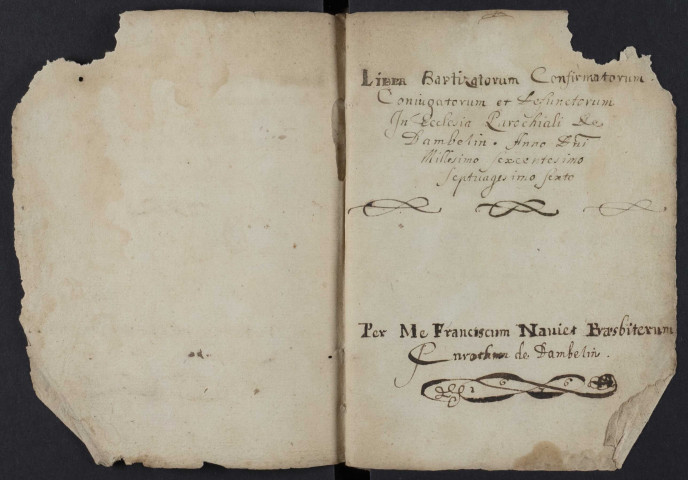 Liber Baptizatorum Confirmatorum
Coniugatorum et Defunctorum
In Ecclesia Parochiali de
Dambelin. Anno Dni
Millesimo sexcentesimo
septuagesimo sexto
Per Me Franciscum Naviet Præsbiterum
Parochum de Dambelin.